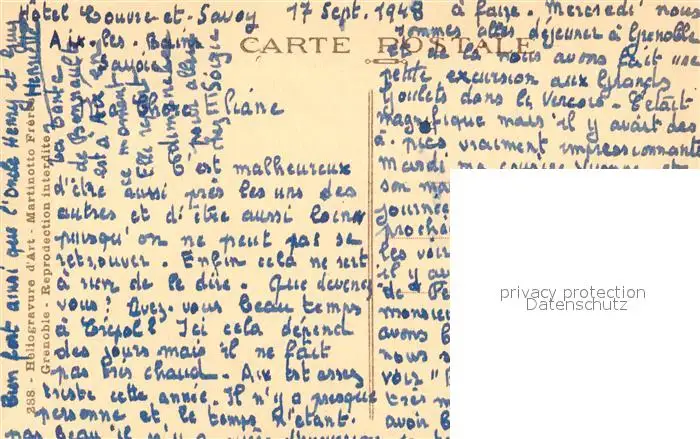 Hôtel Louvre-et-Savoy 17 Sept. 1948
Aix-les-Bains
Savoie
CARTE POSTALE
Chère Liane
est malheureux
d'être aussi près les uns des
autres et d'être aussi loin
puisqu'on ne peut pas se
retrouver. Enfin cela ne sert
à rien de le dire. Que devenez
vous? Avez-vous beau temps
à Ici cela dépend
des jours mais il ne fait
pas très chaud. Aix est assez
triste cette année. Il n'y a presque
personne et le temps n'étant
pas beau il n'y a
à faire. Mercredi nous
sommes allés déjeuner à Grenoble
et de là nous avons fait une
petite excursion aux Grands
Goulets dans le Vercors. C'était
magnifique mais il y avait des
à-pics vraiment impressionnants
Mardi ma cousine Yvonne et
son ma
journée
prochai
les voir
il y au
de Pe
monsieu
avons b
nous s
voir "
très m
avoir b
La Comte
de
est à Aix en
ce moment
Elle
pour aller
chez
Bien fort ainsi que l'Oncle Henry et Guy
288 - Héliogravure d'Art - Martinotto Frères
Grenoble - Reproduction interdite
privacy protection
Datenschutz